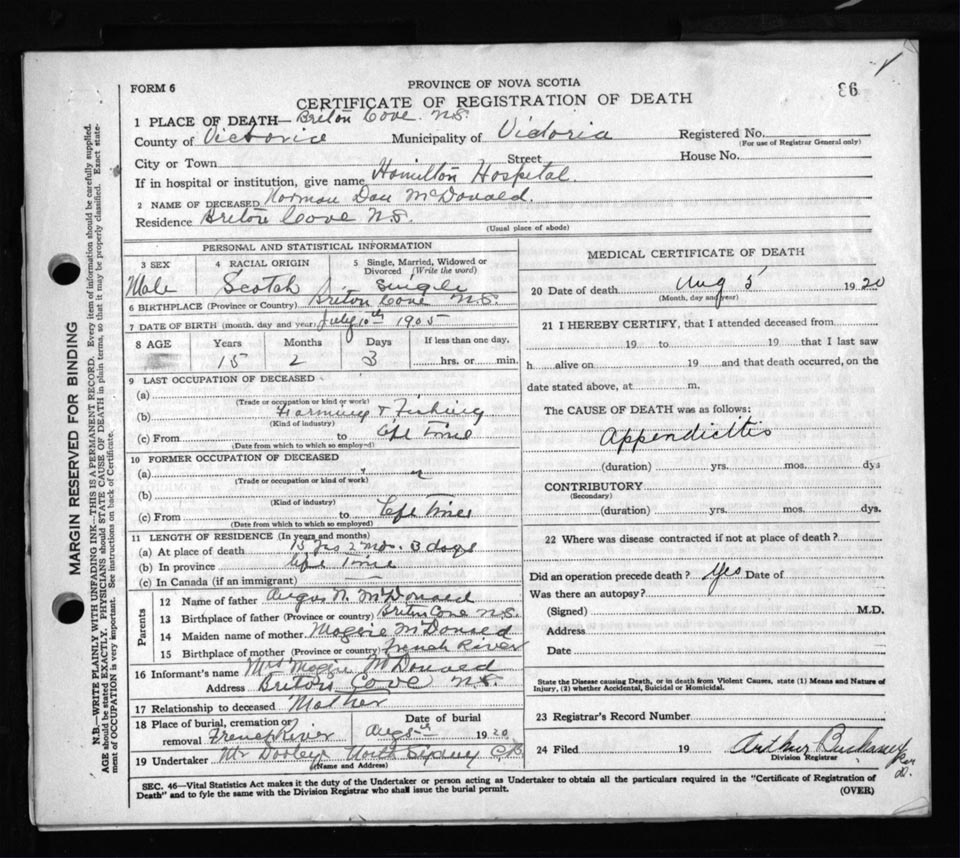 PROVINCE OF NOVA SCOTIA
FORM 6
86
CERTIFICATE OF REGISTRATION OF DEATH
1 PLACE OF DEATH—Breton Cove N.S.
County of Victoria Municipality of Victoria Registered No.
(For use of Registrar General only)
City or Town Street House No.
If in hospital or institution, give name Hamilton Hospital.
2 NAME OF DECEASED Norman Dan McDonald.
Residence Breton Cove N.S.
(Usual place of abode)
PERSONAL AND STATISTICAL INFORMATION
3 SEX 4 RACIAL ORIGIN 5 Single, Married, Widowed or Divorced (Write the word)
Male Scotch Single
6 BIRTHPLACE (Province or Country) Breton Cove N.S.
7 DATE OF BIRTH (month, day and year) July 10th 1905
8 AGE Years Months Days If less than one day,
15 2 3 hrs. or min.
9 LAST OCCUPATION OF DECEASED
(a)
(Trade or occupation or kind or work)
(b) Farming & Fishing
(Kind of industry)
(c) From to Life Time
(Date from which to which so employed)
10 FORMER OCCUPATION OF DECEASED
(a)
(Trade or occupation or kind of work)
(b)
(Kind of industry)
(c) From to Life Time
(Date from which to which so employed)
11 LENGTH OF RESIDENCE (In years and months)
(a) At place of death 15 yrs 2 mo. 3 days
(b) In province Life Time
(c) In Canada (if an immigrant)
Parents
12 Name of father Angus N. McDonald
13 Birthplace of father (Province or country) Breton Cove N.S.
14 Maiden name of mother Maggie McDonald
15 Birthplace of mother (Province or country) French River
16 Informant's name Mrs Maggie McDonald
Address Breton Cove N.S.
17 Relationship to deceased Mother
18 Place of burial, cremation or removal French River Date of burial Aug 5th 1920
19 Undertaker Mr Dooley North Sydney C.B.
(Name and Address)
MEDICAL CERTIFICATE OF DEATH
20 Date of death Aug 5 1920
(Month, day and year)
21 I HEREBY CERTIFY, that I attended deceased from
19 to 19 that I last saw
h alive on 19 and that death occurred, on the
date stated above, at m.
The CAUSE OF DEATH was as follows:
Appendicitis
(duration) yrs. mos. dys
CONTRIBUTORY
(Secondary)
(duration) yrs. mos. dys.
22 Where was disease contracted if not at place of death?
Did an operation precede death? Yes Date of
Was there an autopsy?
(Signed) M.D.
Address
Date
State the Disease causing Death, or in death from Violent Causes, state (1) Means and Nature of
Injury, (2) whether Accidental, Suicidal or Homicidal.
23 Registrar's Record Number
24 Filed 19 Arthur Buchanan
Division Registrar
SEC. 46—Vital Statistics Act makes it the duty of the Undertaker or person acting as Undertaker to obtain all the particulars required in the "Certificate of Registration of
Death" and to fyle the same with the Division Registrar who shall issue the burial permit.
(OVER)
MARGIN RESERVED FOR BINDING
N.B.—WRITE PLAINLY WITH UNFADING INK—THIS IS A PERMANENT RECORD. Every item of information should be carefully supplied.
AGE should be stated EXACTLY. PHYSICIANS should STATE CAUSE OF DEATH in plain terms, so that it may be properly classified. Exact state-
ment of OCCUPATION is very important. See instructions on back of Certificate.